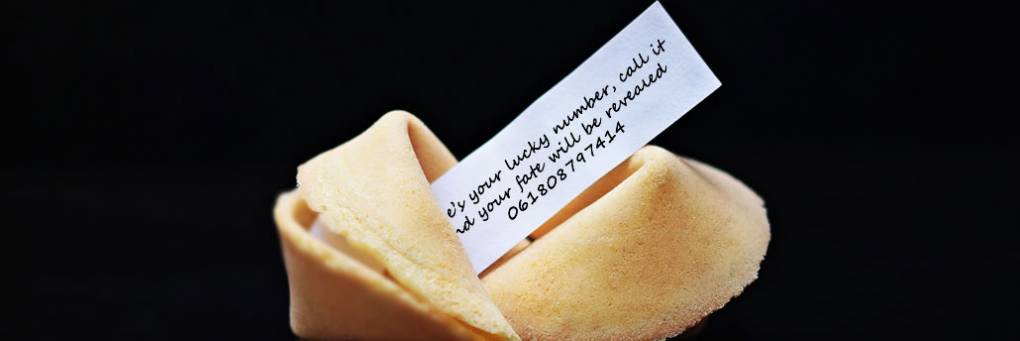 e's your lucky number, call it
nd your fate will be revealed
061808797414